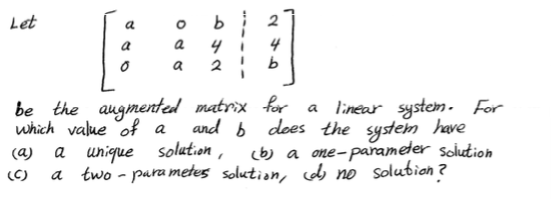 Let
a o b 2
a a 4 4
o a 2 b
be the augmented matrix for a linear system. For
which value of a and b does the system have
(a) a unique solution, (b) a one-parameter solution
(c) a two-parametes solution, (d) no solution?